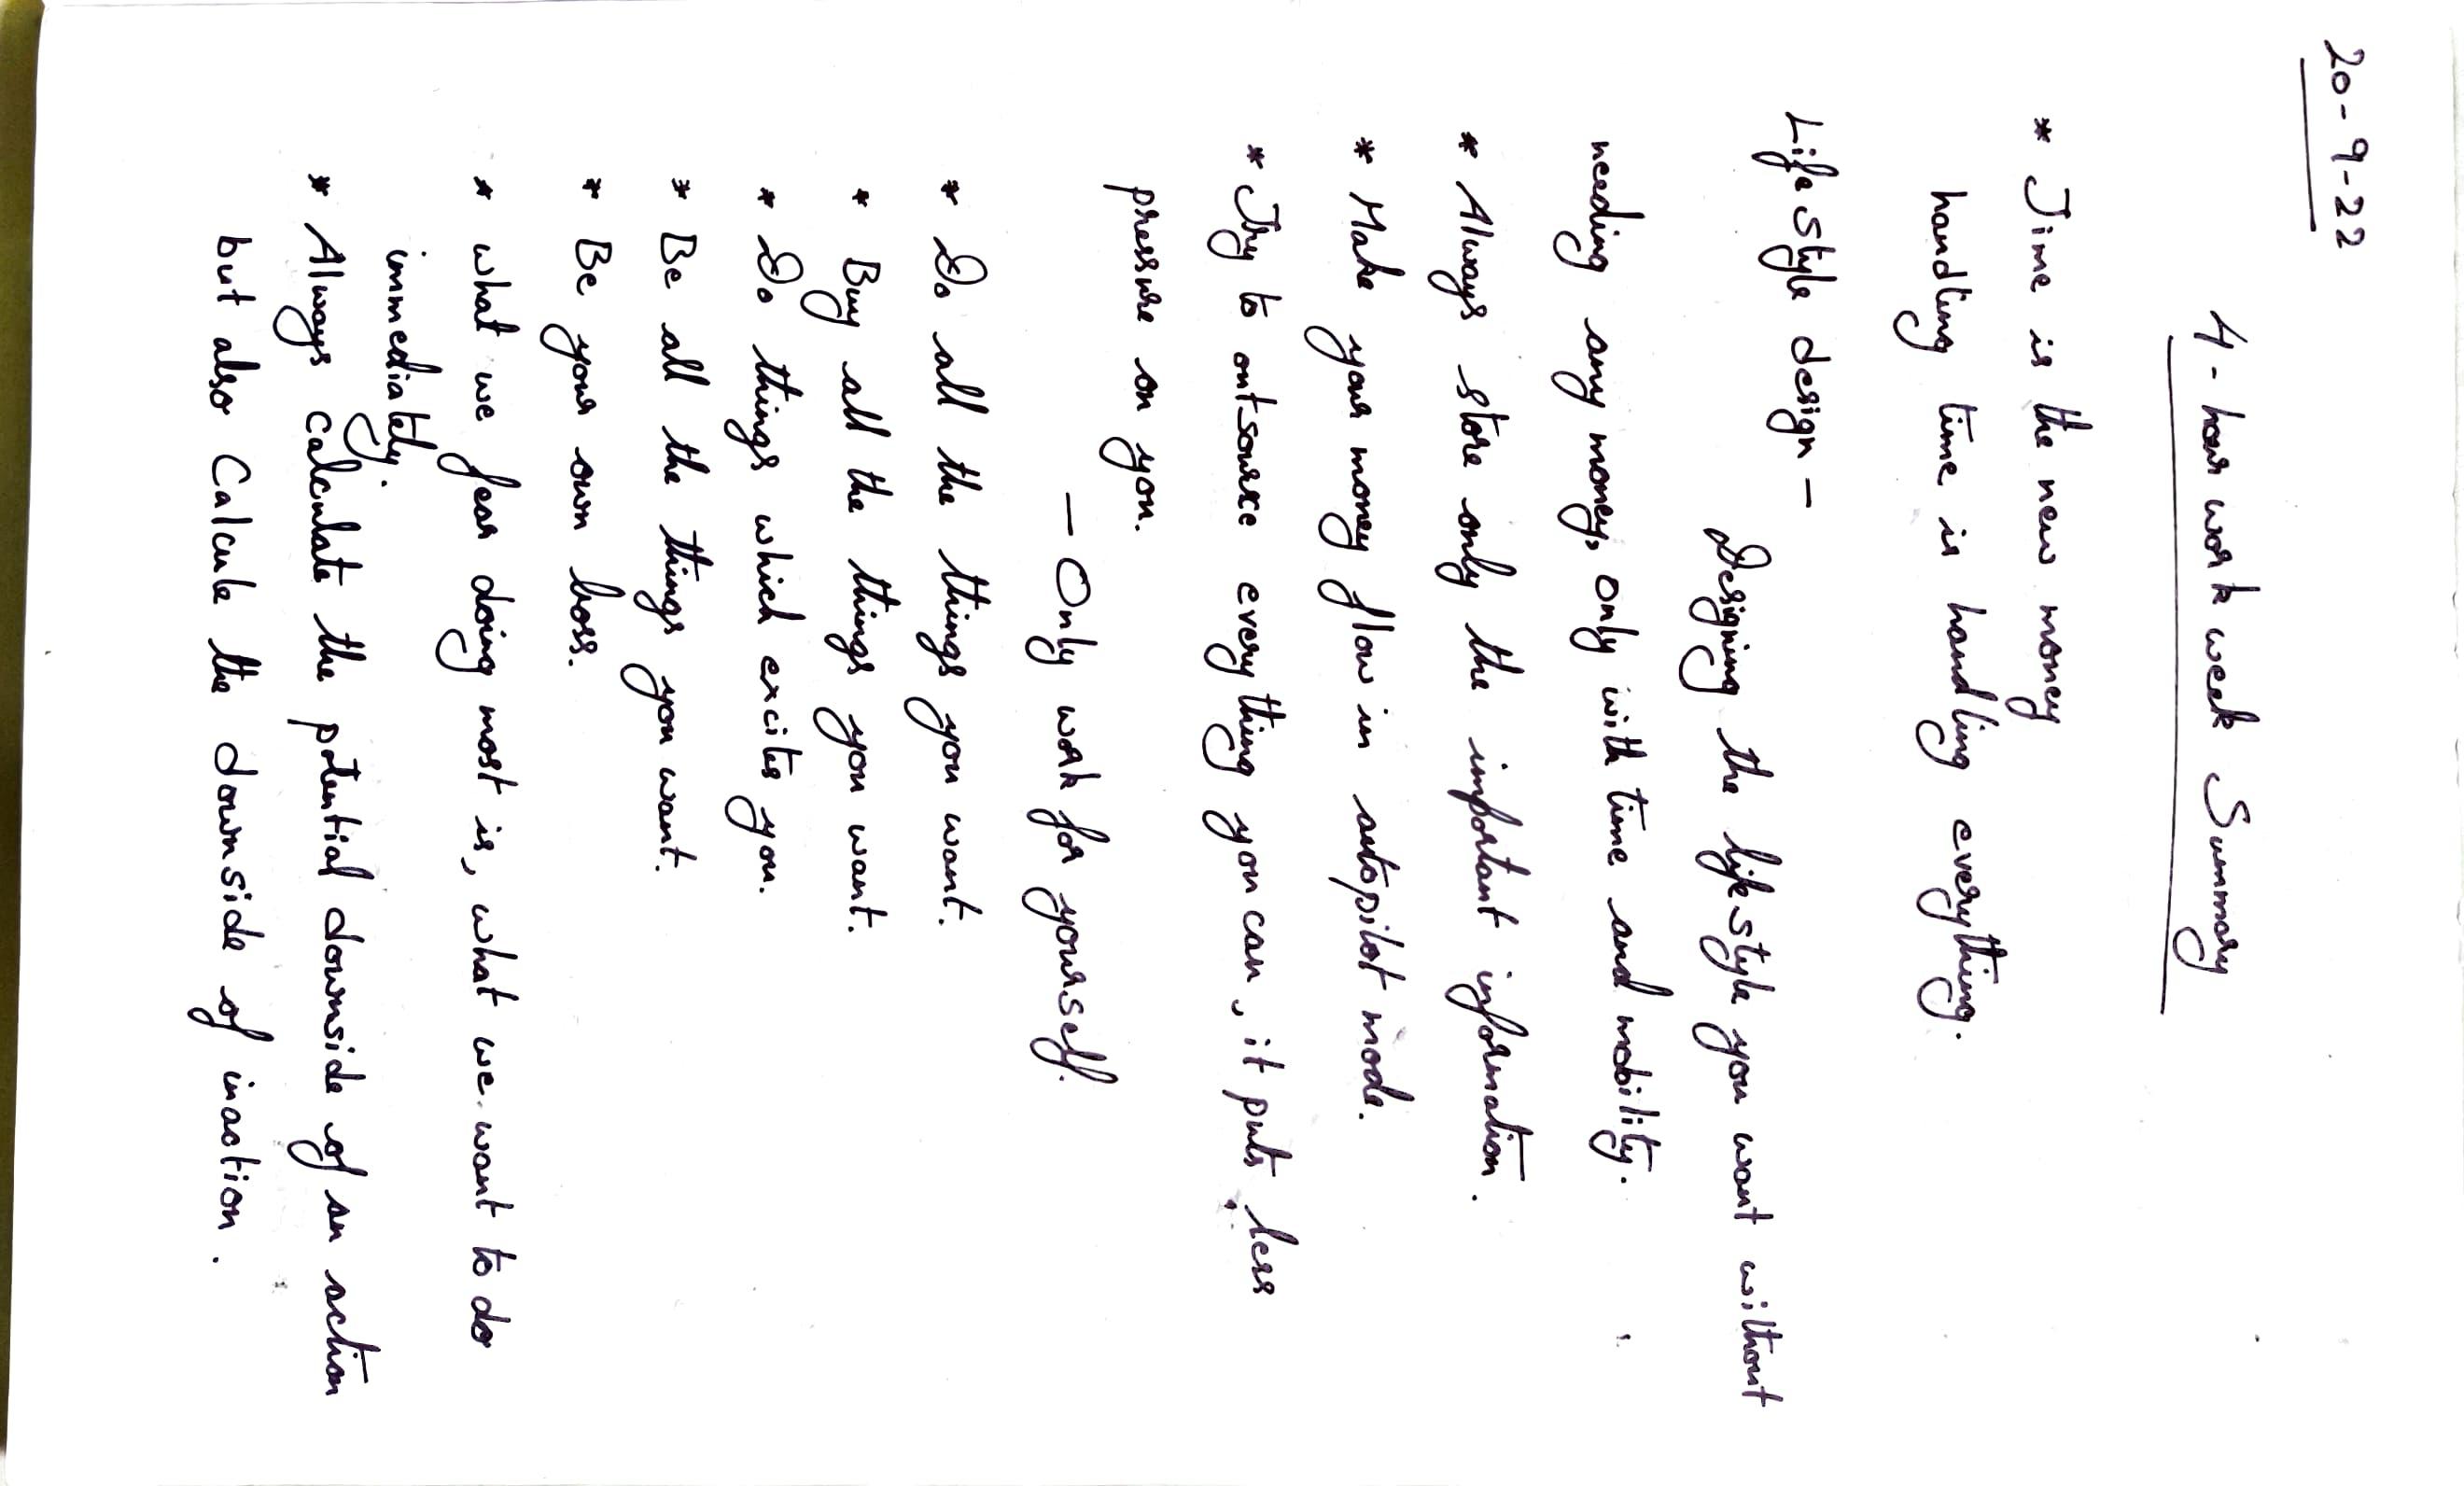 20-9-22
4-hour work week Summary
* Time is the new money
handling time is handling everything.
Life style design -
Designing the life style you want without
needing any money, only with time and mobility.
* Always store only the important information.
* Make your money flow in autopilot mode.
* Try to outsource everything you can, it puts less
pressure on you.
- Only work for yourself.
* Do all the things you want.
* Buy all the things you want.
* Do things which excites you.
* Be all the things you want.
* Be your own boss.
* what we fear doing most is, what we want to do
immediately.
* Always calculate the potential downside of an action
but also Calcule the downside of inaction.